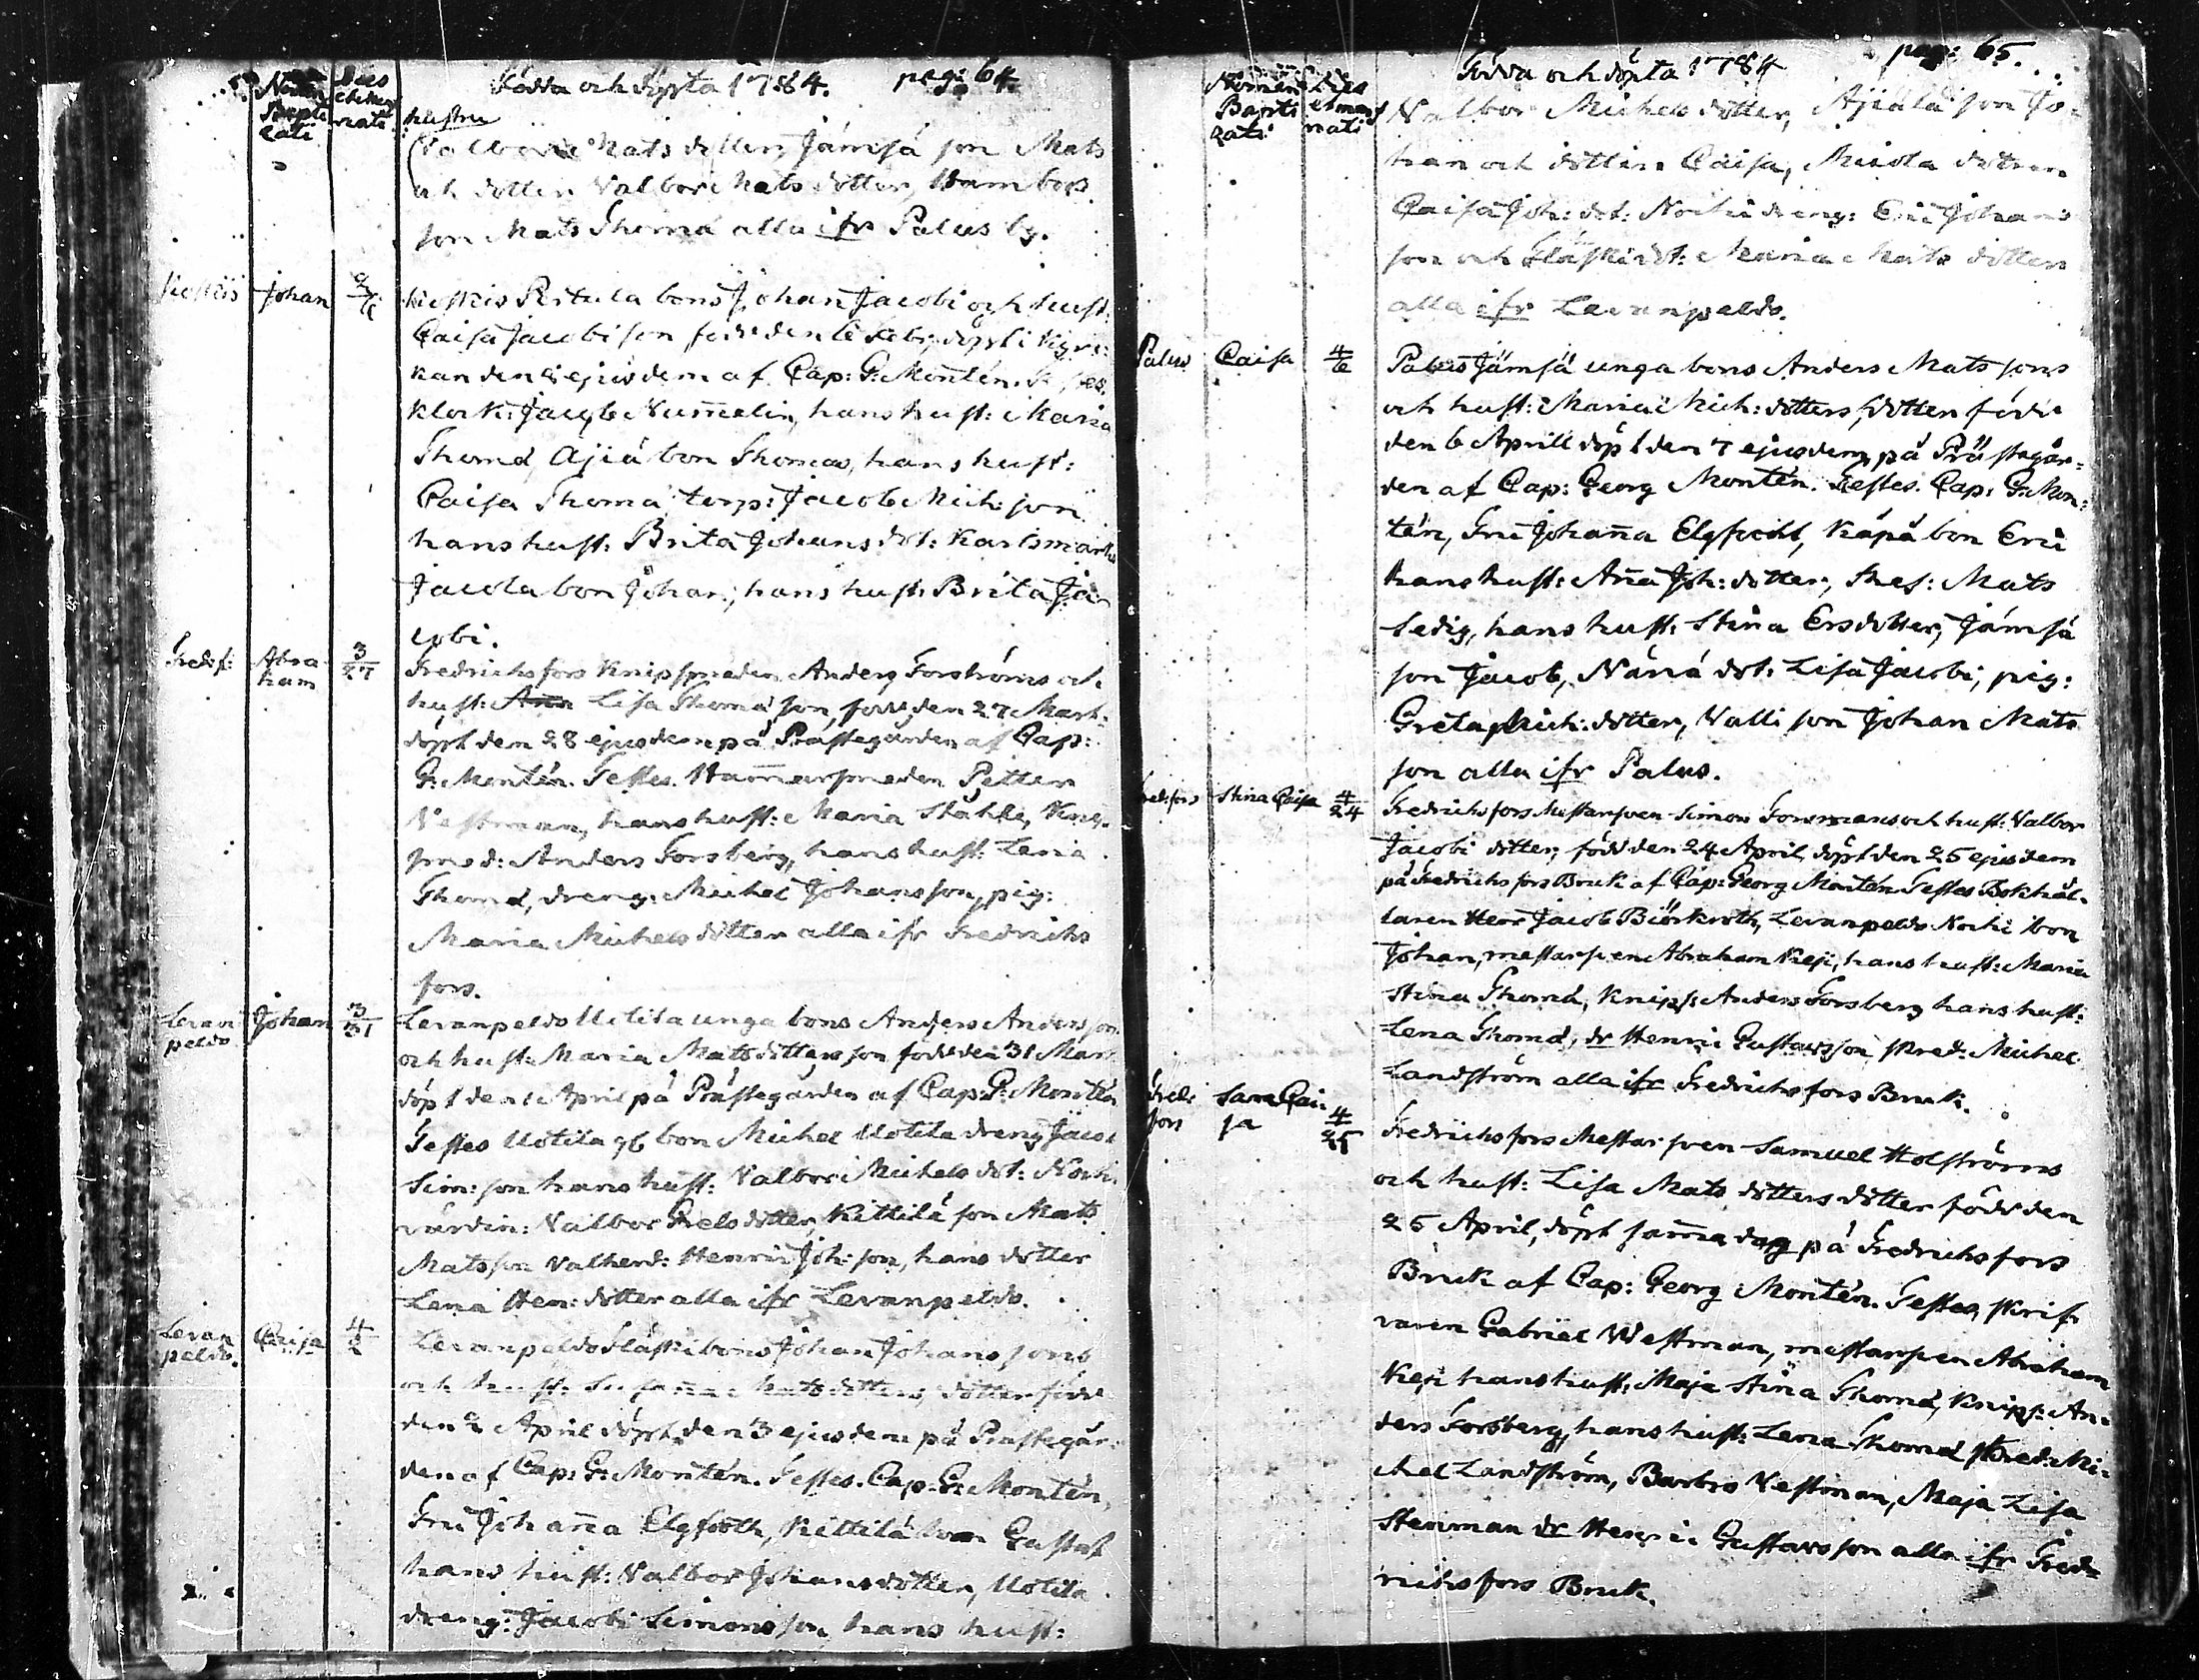 Födda och Döpta 1784. pag: 64
Nomen Bapti zati
Dies et mens nati
hustru
Valbor Mats dotter, Jämsä son Mats
och dotter Valbor Mats dotter,
son Mats Thomæ alla ifr Palus by.
Koskis Johan 2/6
Koskis Pertula bons Johan Jacobi och hust:
Caisa Jacobi son född den 6 Febr: döpt i kyr
kan den ejusdem af Cap: G: Montén.
klock: Jacob Numelin, hans hust: Maria
Thomæ, Äjiä bon Thomas, hans hust:
Caisa Thomæ torp: Jacob Mich: son
hans hust: Brita Johans dot: Karismark
Jacola bon Johan, hans hust: Brita Ja-
cobi.
Fredr f: Abra ham 3/27
Fredrichsfors Knipsmeden Anders Forströms och
hust: Lisa Thomæ son, född den 27 Mart:
döpt den 28 ejusdem på Prästegården af Cap:
G: Montén. Testes. Hammarsmeden Petter
Vestman, hans hust: Maria Ståhle, Knip
smed: Anders Forsberg, hans hust: Lena
Thomæ, dreng: Michel Johansson, pig:
Maria Michels dotter alla ifr Fredrichs
fors.
Levan peldo Johan 3/31
Levanpeldo Uotila unga bons Anders Anders son
och hust: Maria Mats dotters son född den 31 Mart
döpt den 1 April på Prästegården af Cap: G: Montén
Testes Uotila gb bon Michel Uotila dreng Jacob
Sim: son hans hust: Valbor Michels dot: Nocki
värdin: Valbor Mats dotter, Kittilä son Mats
Matsson Henric Joh: son, hans dotter
Lena Hen: dotter alla ifr Levanpeldo.
Levan peldo. Caisa 4/2
Levanpeldo Fläski bons Johan Johans sons
och hust: Susanna Mats dotters, dotter född
den 2 April döpt den 3 ejusdem på Prästegår-
den af Cap: G: Montén. Testes. Cap: G: Montén,
Fru Johanna Elgfooth, Kittilä bon Gustaf
hans hust: Valbor Johans dotter, Uotila
dreng: Jacobi Simonsson, hans hust:
Födda och döpta 1784 pag: 65.
Nomen Bapti zati
Dies et mens nati
Valbor Michels dotter, Äjiälä son Jo-
han och dotter Caisa, Micola dottren
Caisa Joh: dot: Nocki dreng: Eric Johans
son och Fläski dot: Maria Mats dotter
alla ifr Levanpeldo.
Palus Caisa 4/6
Palus Jämsä unga bons Anders Mats sons
och hust: Maria Mich: dotters, dotter född
den 6 Aprill döpt den 7 ejusdem på Prästegår-
den af Cap: Georg Montén. Testes. Cap: G: Mon-
tén, Fru Johanna Elgfooth, Käpä bon Eric
hans hust: Anna Joh: dotter, Mats
Sedig, hans hust: Stina Ersdotter, Jämsä
son Jacob, Nänä dot: Lisa Jacobi, pig:
Greta Mich: dotter, Valli son Johan Mats
son alla ifr Palus.
Fredr: fors Stina Caisa 4/24
Fredrichsfors Mestarsven Simon Forsmans och hust: Valbor
Jacobi dotter, född den 24 April döpt den 25 ejusdem
på Fredrichsfors Bruk af Cap: Georg Montén Testes Bokhål-
laren Herr Jacob Biörkroth, Levanpeldo Nocki bon
Johan, mestarsven Abraham Kieji, hans hust: Maria
Stina Thomæ, Knips: Anders Forsberg hans hust:
Lena Thomæ, dr Henric Gustavsson skred: Michel
Landström alla ifr Fredrichsfors Bruk.
Fredr fors Sara Cai sa 4/25
Fredrichsfors Mestarsven Samuel Holströms
och hust: Lisa Mats dotters dotter född den
25 April, döpt samma dag på Fredrichsfors
Bruk af Cap: Georg Montén. Testes, skrif
varen Gabriel Westman, mestarsven Abraham
Kieji hans hust: Maja Stina Thomæ, Knips: An-
ders Forsberg, hans hust: Lena Thomæ skred: Mi-
chel Landström, Barbro Vestman, Maja Lisa
Stenman dr Henric Gustavsson alla ifr Fred-
richsfors Bruk.